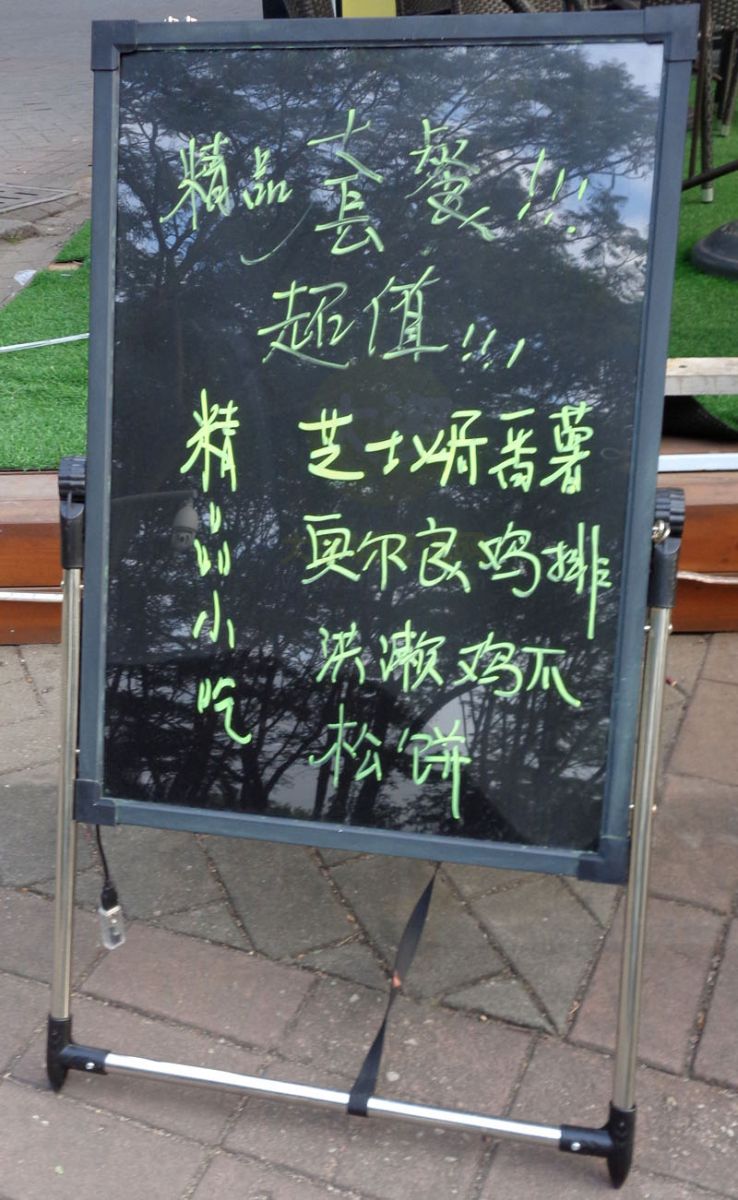 精品套餐!!!
超值!!!
精品小吃
芝士焗番薯
奥尔良鸡排
洪濑鸡爪
松饼